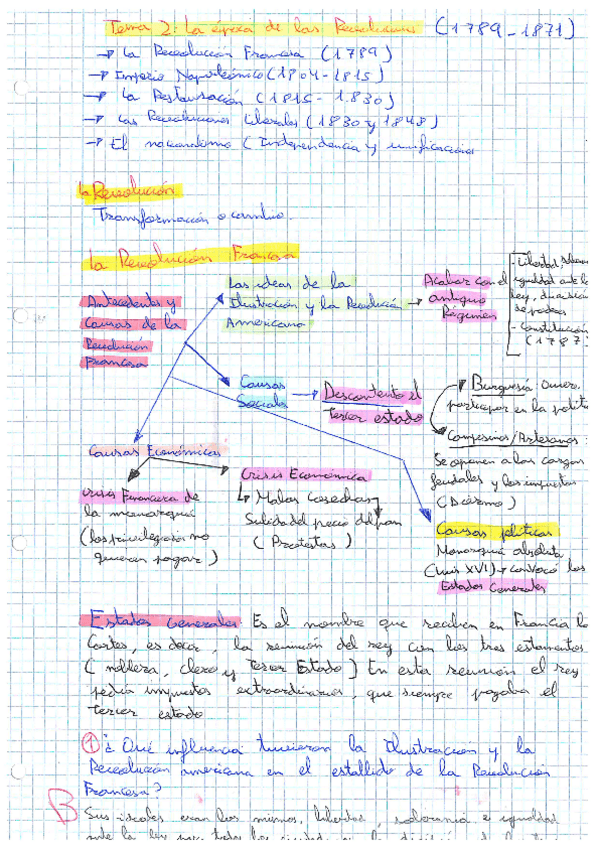 Tema 2: La época de las Revoluciones (1789-1871)
→ La Revolución Francesa (1789)
→ Imperio Napoleónico (1804-1815)
→ La Restauración (1815-1830)
→ Las Revoluciones Liberales (1830 y 1848)
→ El nacionalismo (Independencia y unificacion
La Revolución
Transformación o cambio.
La Revolución Francesa
Antecedentes y
Causas de la
Revolución
Francesa
Las ideas de la
Ilustración y la Revolución
Americana
→ Acabar con el
antiguo
Régimen
- Libertad,
igualdad ante la
ley, división
de poderes
- Constitución
(1787)
Causas
Sociales
→ Descontento el
tercer estado
→ Burguesía:
participar en la politi
Campesinos/Artesanos:
Se oponen a las cargas
feudales y los impuestos
(Diezmo)
Causas Económicas
Crisis Financiera de
la monarquía
(los privilegiados no
querían pagar)
Crisis Económica
↳ Malas cosechas
Subida del precio del pan
(Protestas)
Causas políticas
Monarquía absoluta
(Luis XVI) → convocó los
Estados Generales
Estados Generales Es el nombre que reciben en Francia la
Cortes, es decir, la reunión del rey con los tres estamentos
(nobleza, clero y Tercer Estado) En esta reunión el rey
pedía impuestos extraordinarios, que siempre pagaba el
tercer estado
① ¿Qué influencia tuvieron la Ilustración y la
Revolución americana en el estallido de la Revolución
Francesa?
B
Sus ideales eran los mismos, libertad, soberanía e igualdad
ante la ley para todos los